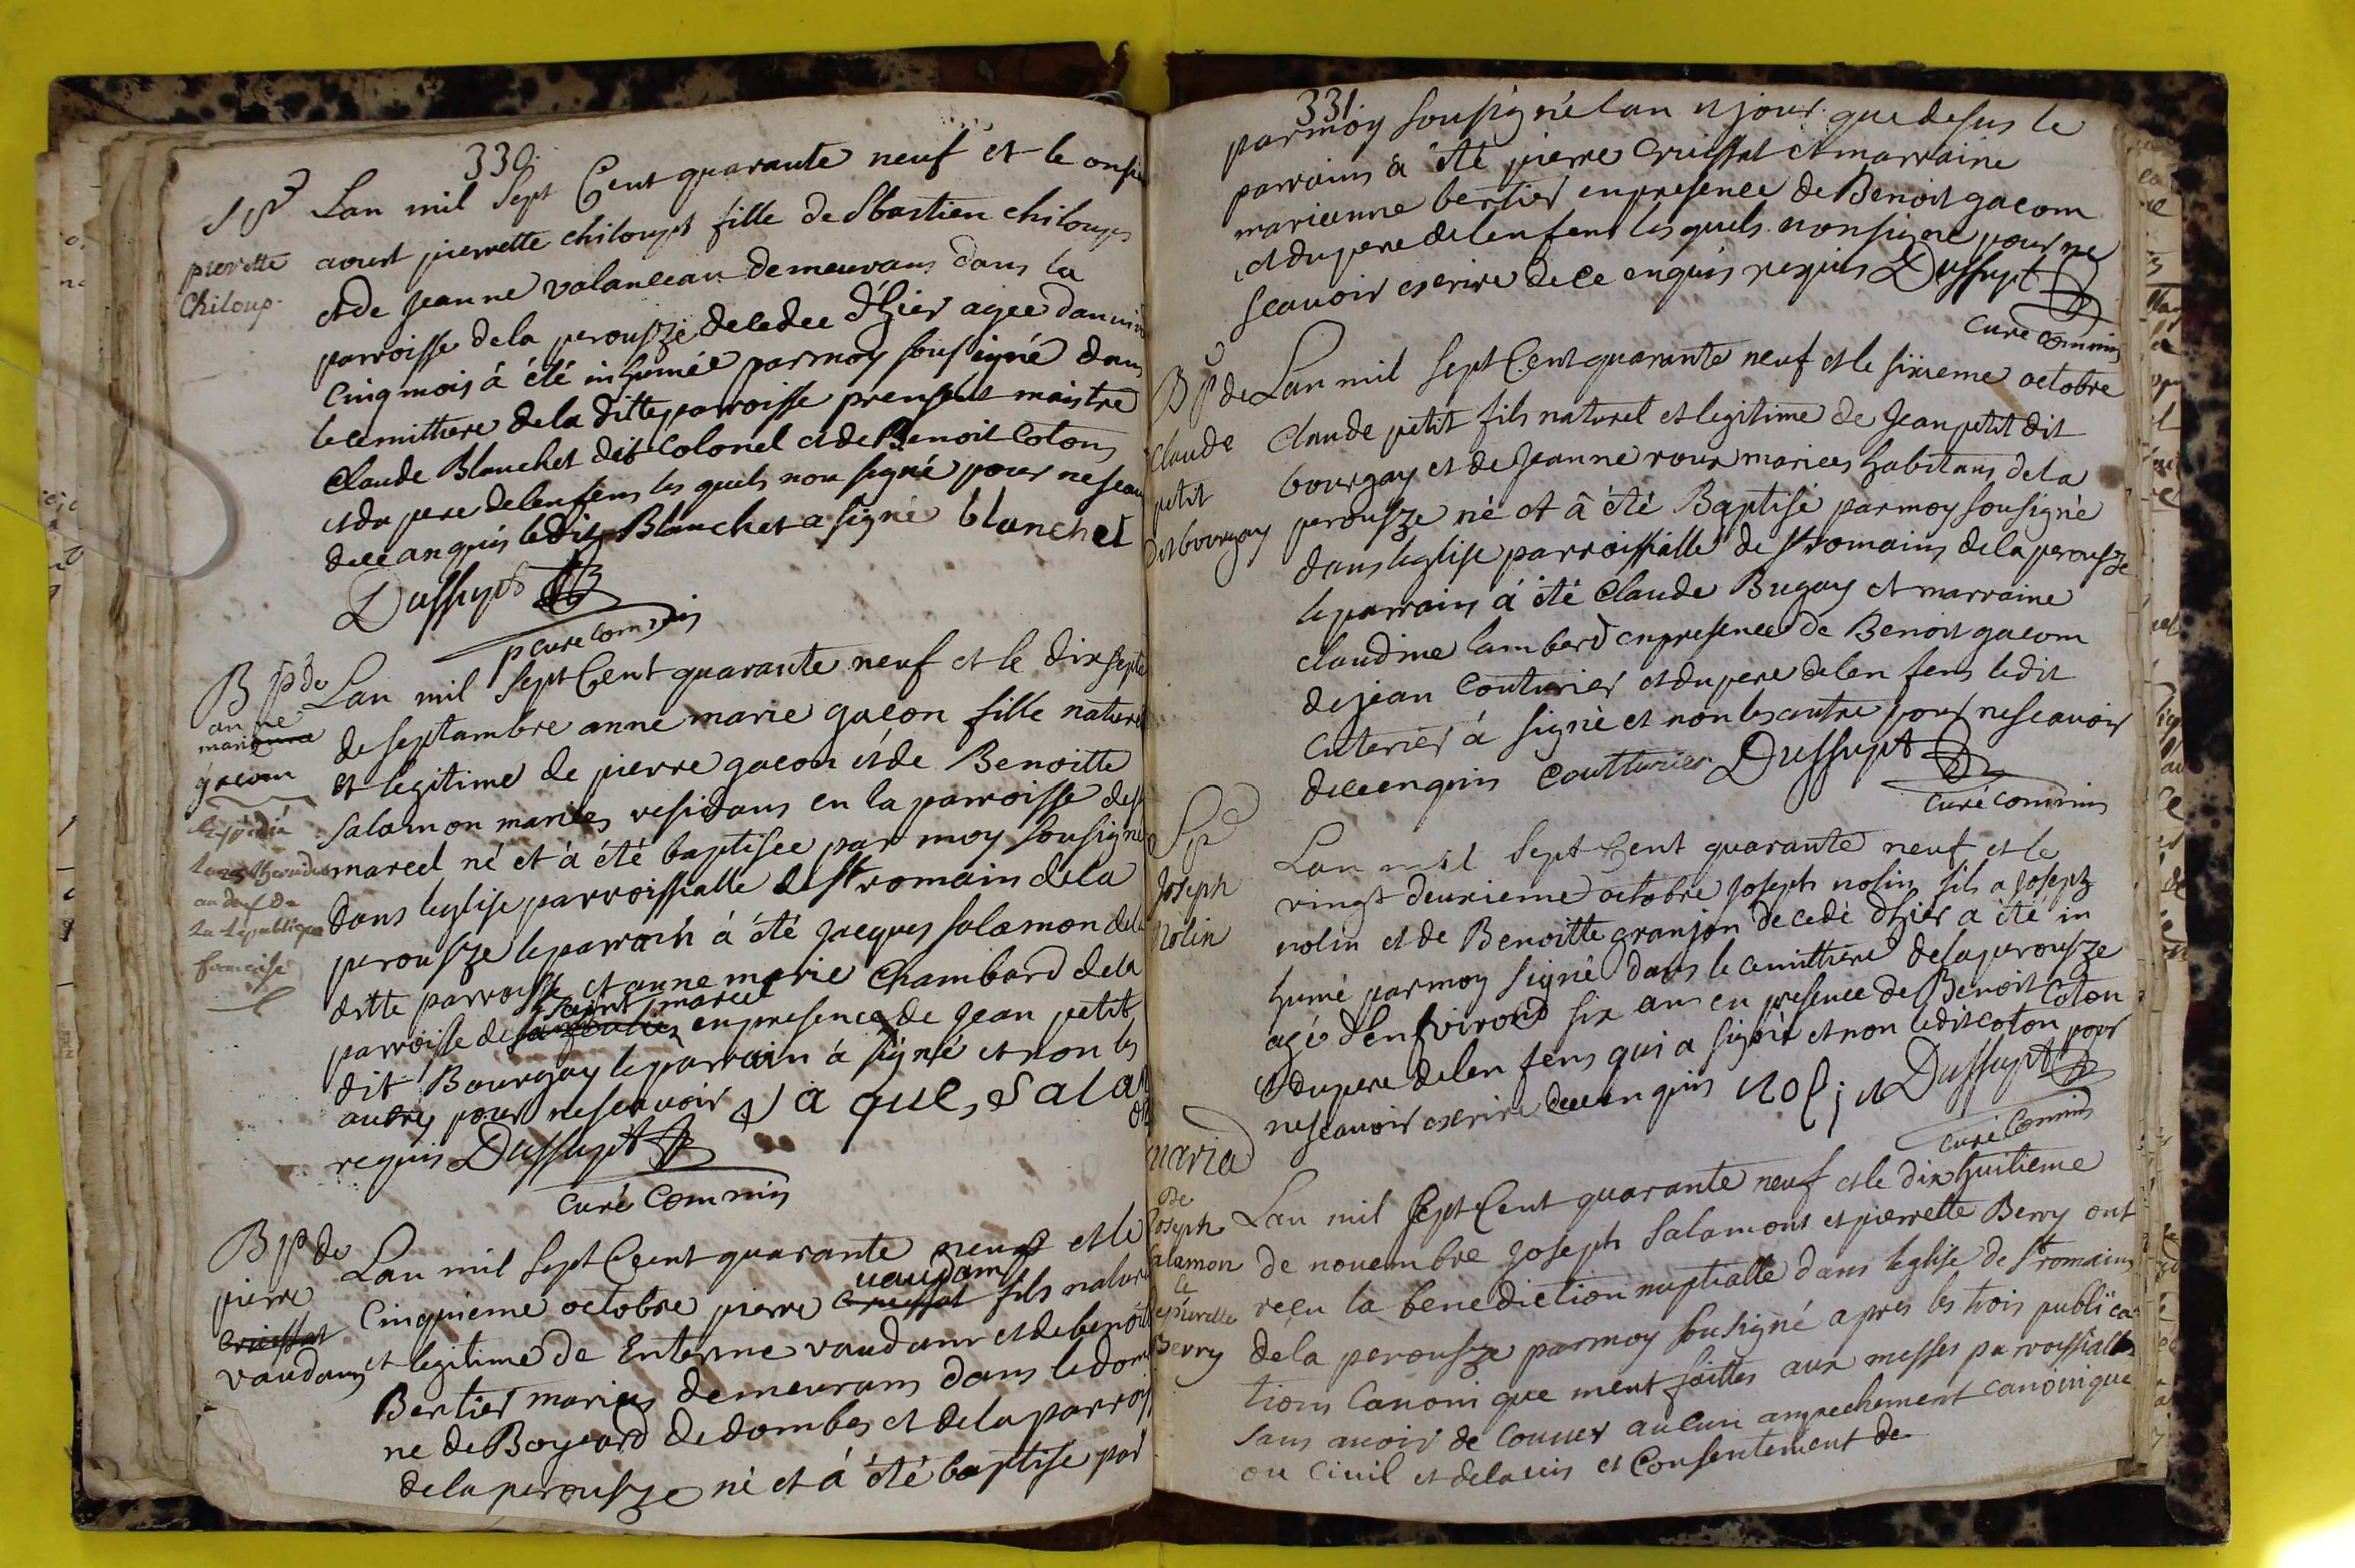 330
Sp
pierrette
Chiloup
Lan mil Sept Cent quarante neuf et le
aoust pierrette chiloup fille de Sbastien
et de Jeanne valanceau demeurans dans la
parroisse de la perousze decedee d'hier agee
Cinq mois à été inhumée par moy sousigné dans
le cemittiere de la ditte parroisse maistre
Claude Blanchet dit Colonel et de Benoit Coton
et du pere de lenfens les quels non signé pour ne
de ce anquis le dit Blanchet a signé blanchet
Dussupt
curé commis
B p de
anne
marianna
gacon
Lan mil Sept Cent quarante neuf et le
de septambre anne marie gacon fille
et legitime de pierre gacon et de Benoitte
salamon maries residans en la parroisse de
marcel né et à été baptisee par moy sousigné
dans leglise parroissialle de St romain de la
perousze le parrain à été Jacques salamon de la
ditte parroisse et anne marie Chambard de la
saint marcel
parroisse de en presence de Jean petit
dit Bourgay le parrain à signé et non les
autres pour ne scavoir Jaque, Sala
requis Dussupt
curé commis
expédié
an neuf de
La republique
francaise
B p de
pierre
cruissat
vaudam
Lan mil Sept Cent quarante neuf et le
vaudam
Cinquieme octobre pierre cruissat fils
et legitime de Entenne vaudam et de
Bertier maries demeurans dans le
ne de Boyeard de dombes et de la
de la perousze né et à été baptise par
331
par moy sousigné lan et jour que desus le
parrains à été pierre Cruissat et marraine
marieanne bertier en presence de Benoit gacom
et du pere de lenfens les quels non signe pour ne
scavoir escrire de ce enquis requis Dussupt
curé commis
B p de
Claude
petit
dit bourgay
Lan mil Sept Cent quarante neuf et le sixieme octobre
Claude petit fils naturel et legitime de Jean petit dit
bourgay et de Jeanne roux mariees habitans de la
perousze né et à été Baptisé par moy sousigné
dans leglise parroissialle de St romains de la perousze
le parrains à été Claude Bugay et marraine
claudine lamberd en presence de Benoit gacom
de jean Couturier et du pere de len fens le dit
Cuterier à signé et non les autre pour ne scavoir
de ce enquis Coutturier Dussupt
curé commis
Sp
Joseph
Nolin
Lan mil Sept Cent quarante neuf et le
vingt deuxieme octobre Joseph nolin fils a joseph
nolin et de Benoitte granjon decedé dhier a été in
humé par moy signé dans le cemittiere de la perousze
agé denfvirond six an en presence de Benoit Coton
et du pere de len fens qui a signé et non le dit coton pour
ne scavoir escrire de ce enquis nolin Dussupt
curé commis
maria
De
Joseph
Salamon
et
de pierrette
Berry
Lan mil Sept Cent quarante neuf et le dix huitieme
de nouembre Joseph Salamont et pierrette Berry ont
reçu la benediction nuptialle dans leglise de St romains
de la perousze par moy sousigné apres les trois publica
tions Canoni que ment faittes aux messes parroissialles
sans auoir de couuer aucun ampechement canonique
ou Ciuil et de lauis et Consentement de